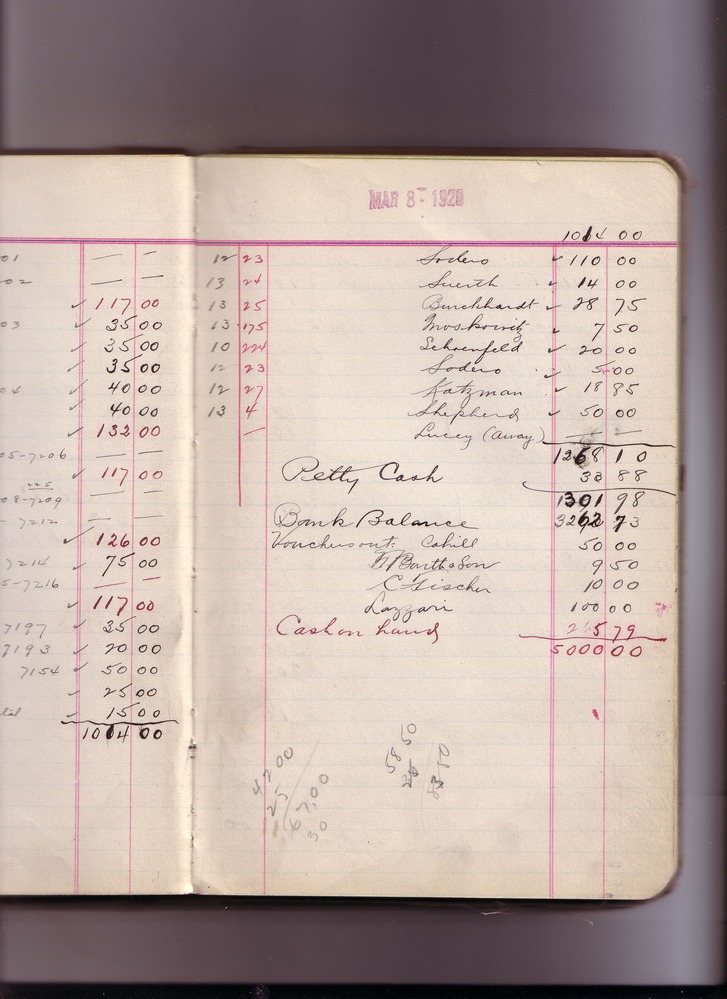 01 — —
02 — —
✓ 117 00
03 ✓ 35 00
✓ 35 00
✓ 35 00
04 ✓ 40 00
✓ 40 00
✓ 132 00
05-7206 — —
225 ✓ 117 00
08-7209 — —
- 7212 — —
✓ 126 00
7214 ✓ 75 00
5-7216 — —
✓ 117 00
7197 ✓ 35 00
7193 ✓ 20 00
7154 ✓ 50 00
✓ 25 00
✓ 15 00
1014 00
MAR 8- 1920
1014 00
12 23 Sodero ✓ 110 00
13 24 Suerth ✓ 14 00
13 25 Burckhardt ✓ 28 75
13 175 Moskowitz ✓ 7 50
10 224 Schoenfeld ✓ 20 00
12 23 Sodero ✓ 5 00
12 27 Katzman ✓ 18 85
13 4 Shepherd ✓ 50 00
— Lucey (Away) — —
1268 10
Petty Cash 33 88
1301 98
Bank Balance 3262 73
Vouchers out: Cahill 50 00
Barth & Son 9 50
C Fischer 10 00
Lazzari 100 00
Cash on hand 265 79
5000 00
42 00
25
67.00
30
58 50